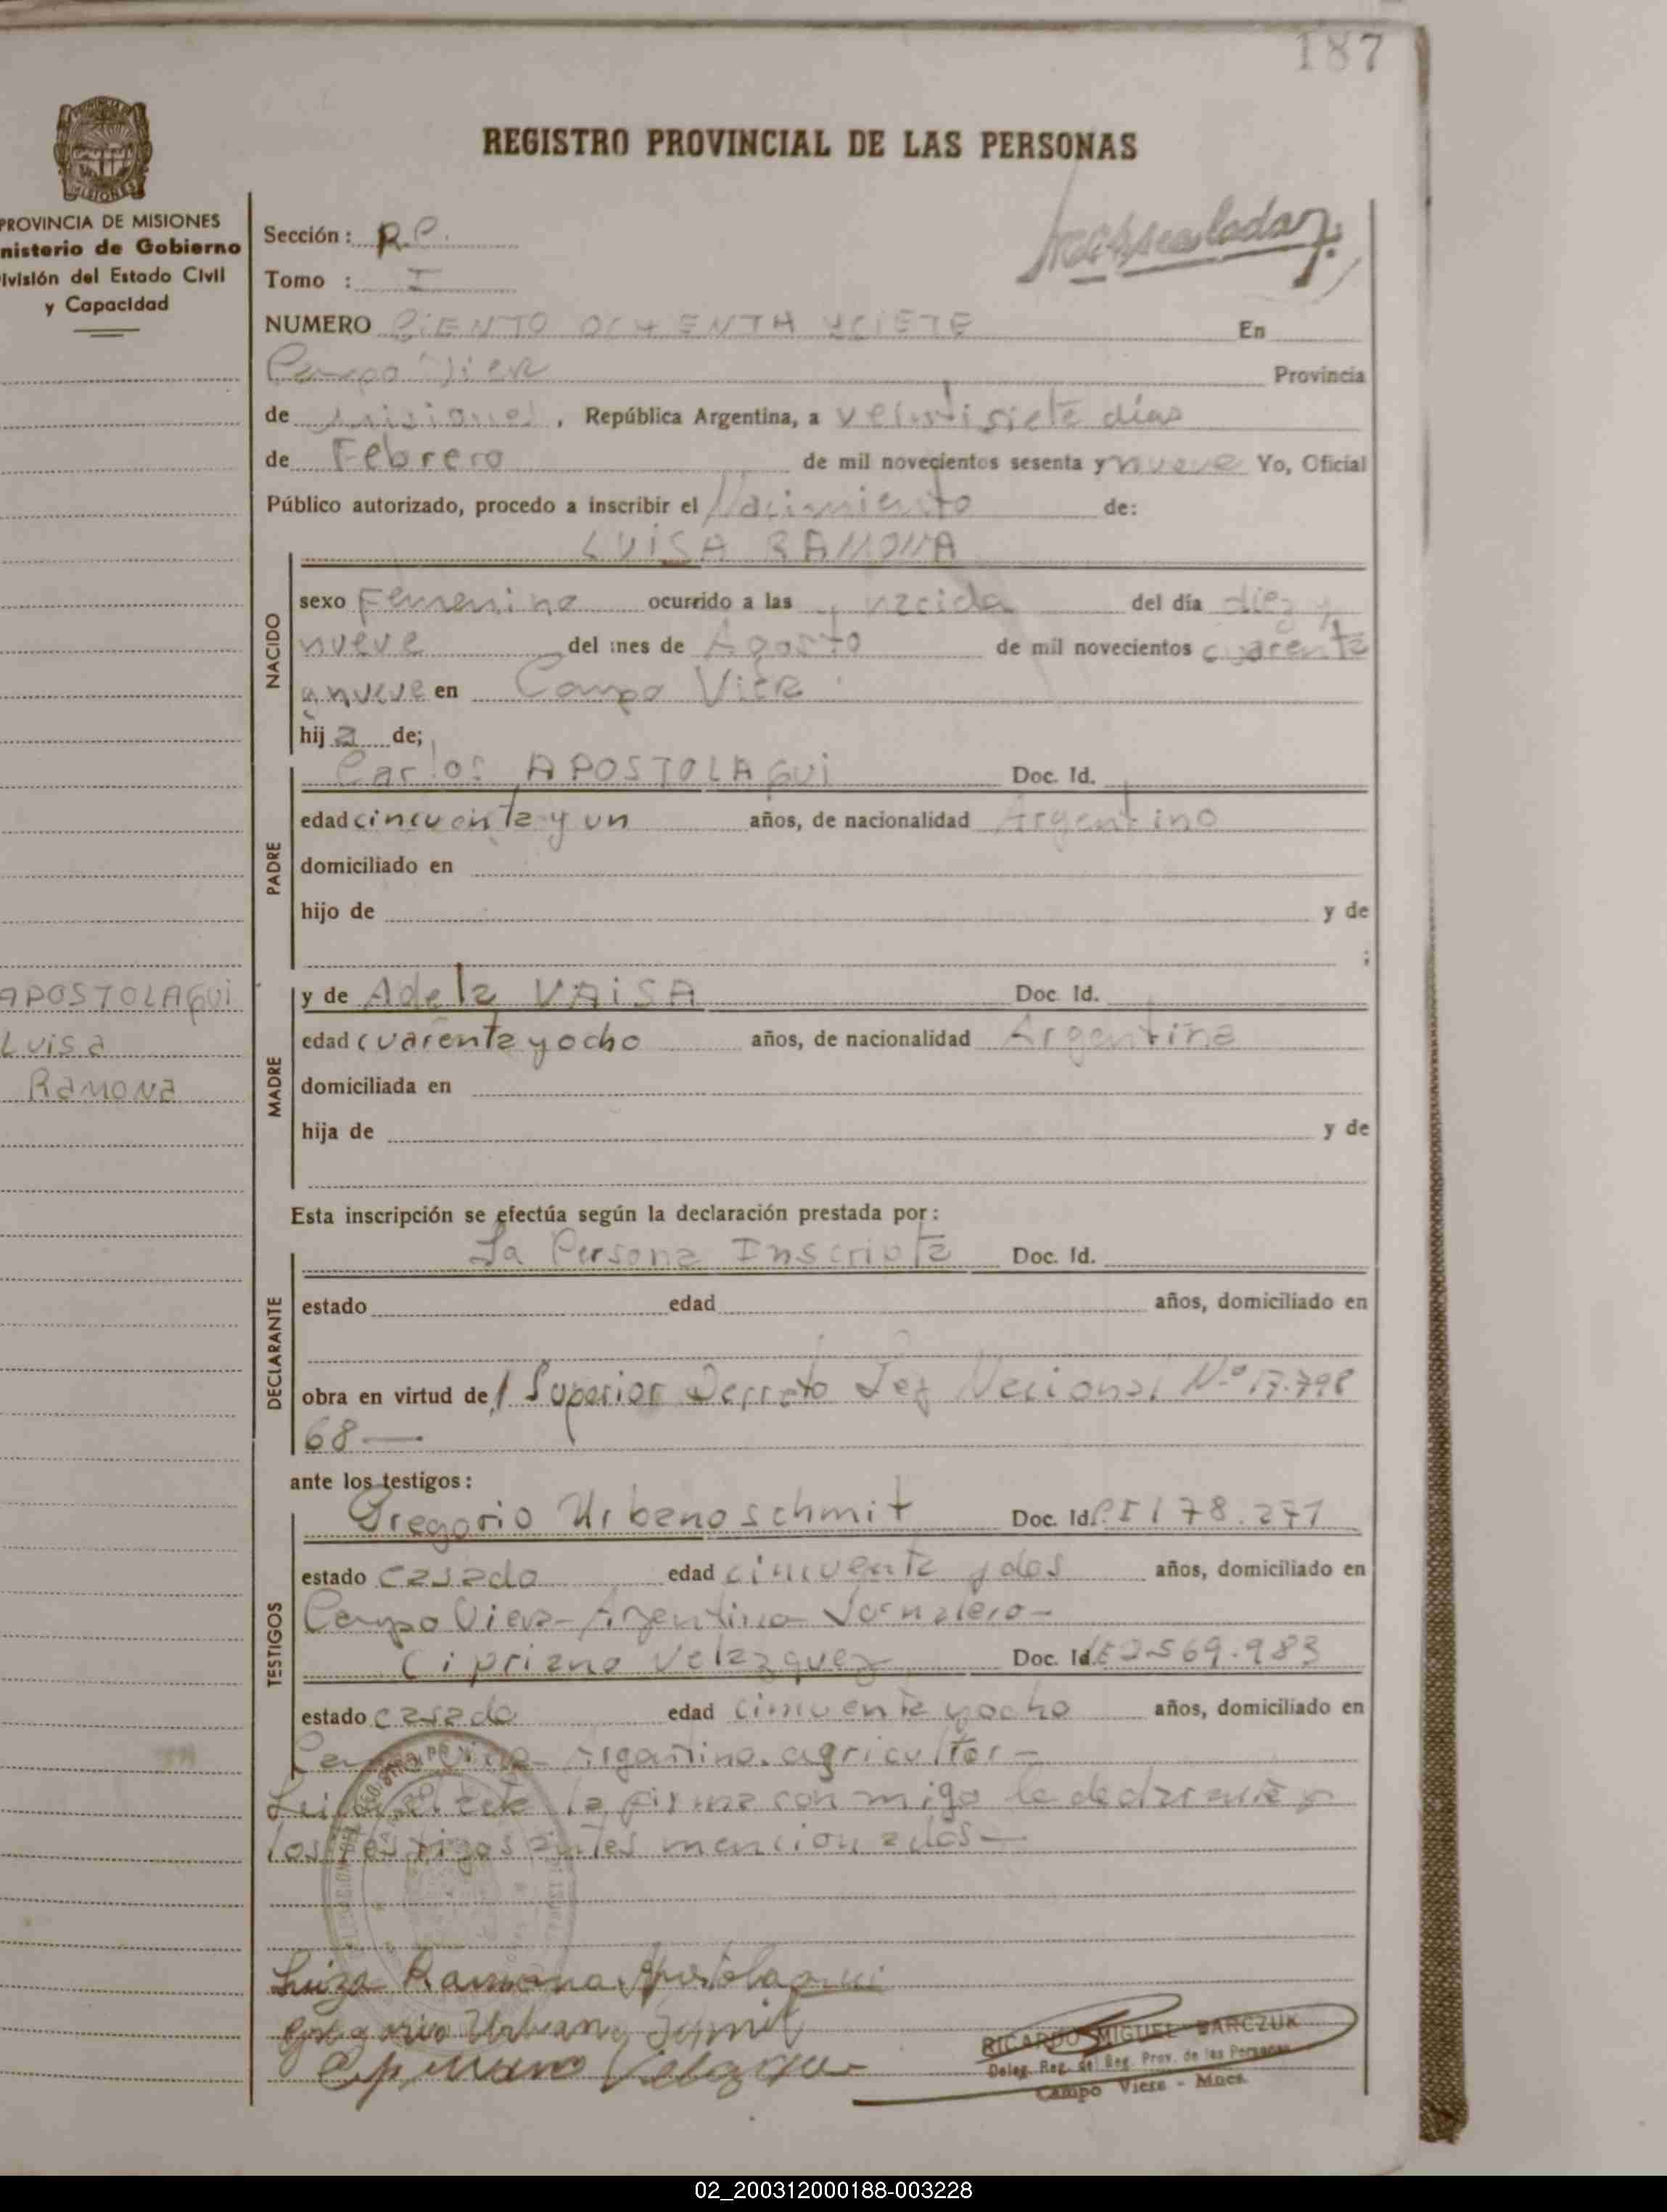 187
REGISTRO PROVINCIAL DE LAS PERSONAS
MISIONES
PROVINCIA DE MISIONES
nisterio de Gobierno
ivisión del Estado Civil
y Capacidad
Sección: R.P.
Tomo : I
NUMERO CIENTO OCHENTA YSIETE En
Campo Viera Provincia
de Misiones, República Argentina, a veintisiete días
de Febrero de mil novecientos sesenta y nueve Yo, Oficial
Público autorizado, procedo a inscribir el Nacimiento de:
LUISA RAMONA
NACIDO
sexo Femenino ocurrido a las nacida del día diez y
nueve del mes de Agosto de mil novecientos cuarenta
y nueve en Campo Viera
hija de;
PADRE
Carlos APOSTOLAGUI Doc. Id.
edad cincuenta y un años, de nacionalidad Argentino
domiciliado en
hijo de y de
;
APOSTOLAGUI
Luisa
Ramona
MADRE
y de Adela VAISA Doc. Id.
edad cuarenta y ocho años, de nacionalidad Argentina
domiciliada en
hija de y de
Esta inscripción se efectúa según la declaración prestada por:
DECLARANTE
La Persona Inscripta Doc. Id.
estado edad años, domiciliado en
obra en virtud de Superior Decreto Ley Nacional Nº 17.798
68—
ante los testigos:
TESTIGOS
Gregorio Urbano schmit Doc. Id. 178.271
estado casado edad cincuenta y dos años, domiciliado en
Campo Viera - Argentino Jornalero -
Cipriano Velazquez Doc. Id. 2569.983
estado casado edad cincuenta y ocho años, domiciliado en
Argentino. agricultor -
Leida el acta la firma con migo la declarante y
los testigos antes mencionados—
Luiza Ramona Apostolagui
Gregorio Urbano Schmit
Cipriano Velazquez
RICARDO MIGUEL BARCZUK
Deleg. Reg. del Reg. Prov. de las Personas
Campo Viera - Mnes.
02_200312000188-003228